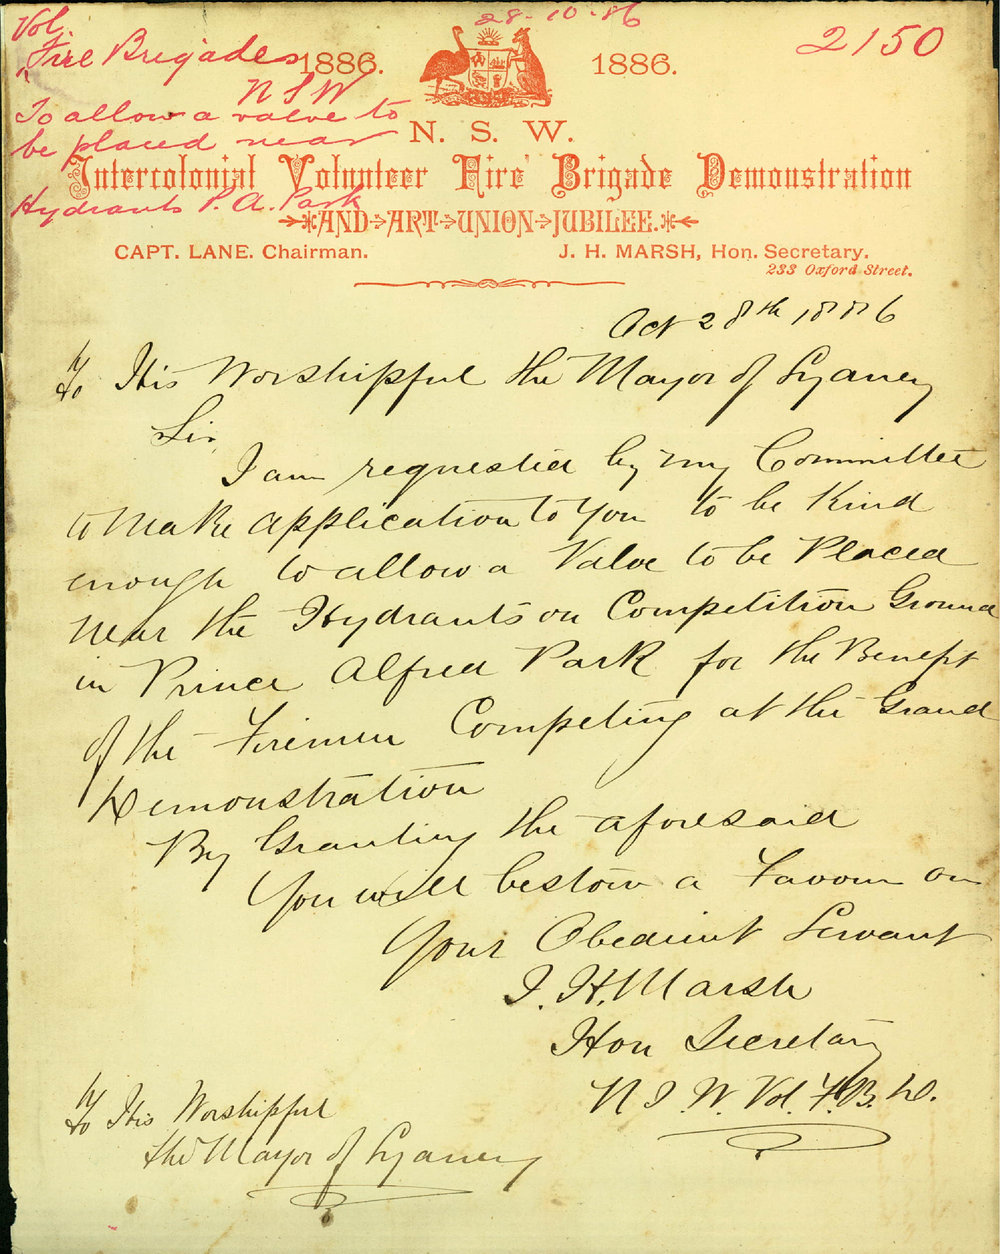 28-10-86
2150
Vol
^
Fire Brigades
N S W
To allow a valve to
be placed near
Hydrants P. A. Park
1886. 1886.
N. S. W.
Intercolonial Volunteer Fire Brigade Demonstration
AND ART UNION JUBILEE.
CAPT. LANE. Chairman. J. H. MARSH, Hon. Secretary.
233 Oxford Street.
Oct 28th 1886
To His Worshipful the Mayor of Sydney
Sir,
I am requested by my Committee
to Make Application to You to be Kind
enough to allow a Valve to be Placed
near the Hydrants on Competition Ground
in Prince Alfred Park for the Benefit
of the Firemen Competing at the Grand
Demonstration
By Granting the aforesaid
You will bestow a Favour on
Your Obedient Servant
J. H. Marsh
Hon Secretary
N S. W. Vol. F. B. D.
To His Worshipful
the Mayor of Sydney